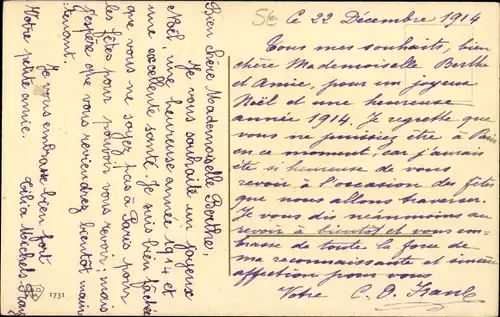 Ce 22 Décembre 1914
Tous mes souhaits, bien
chère Mademoiselle Berthe
et Amie, pour un joyeux
Noël et une heureuse
année 1914. Je regrette que
vous ne puissiez être à Paris
en ce moment, car j'aurais
été si heureuse de vous
revoir à l'occasion des fêtes
que nous allons traverser.
Je vous dis néanmoins au
revoir à bientôt et vous em-
brasse de toute la force de
ma reconnaissante et sincère
affection pour vous
Votre C. D.
Bien chère Mademoiselle Berthe,
Je vous souhaite un joyeux
Noël, une heureuse année 1914 et
une excellente santé. Je suis bien fâchée
que vous ne soyez pas à Paris pour
les fêtes pour pouvoir vous revoir; mais
j'espère que vous reviendrez bientôt main
tenant.
Je vous embrasse bien fort
Votre petite amie.
1731